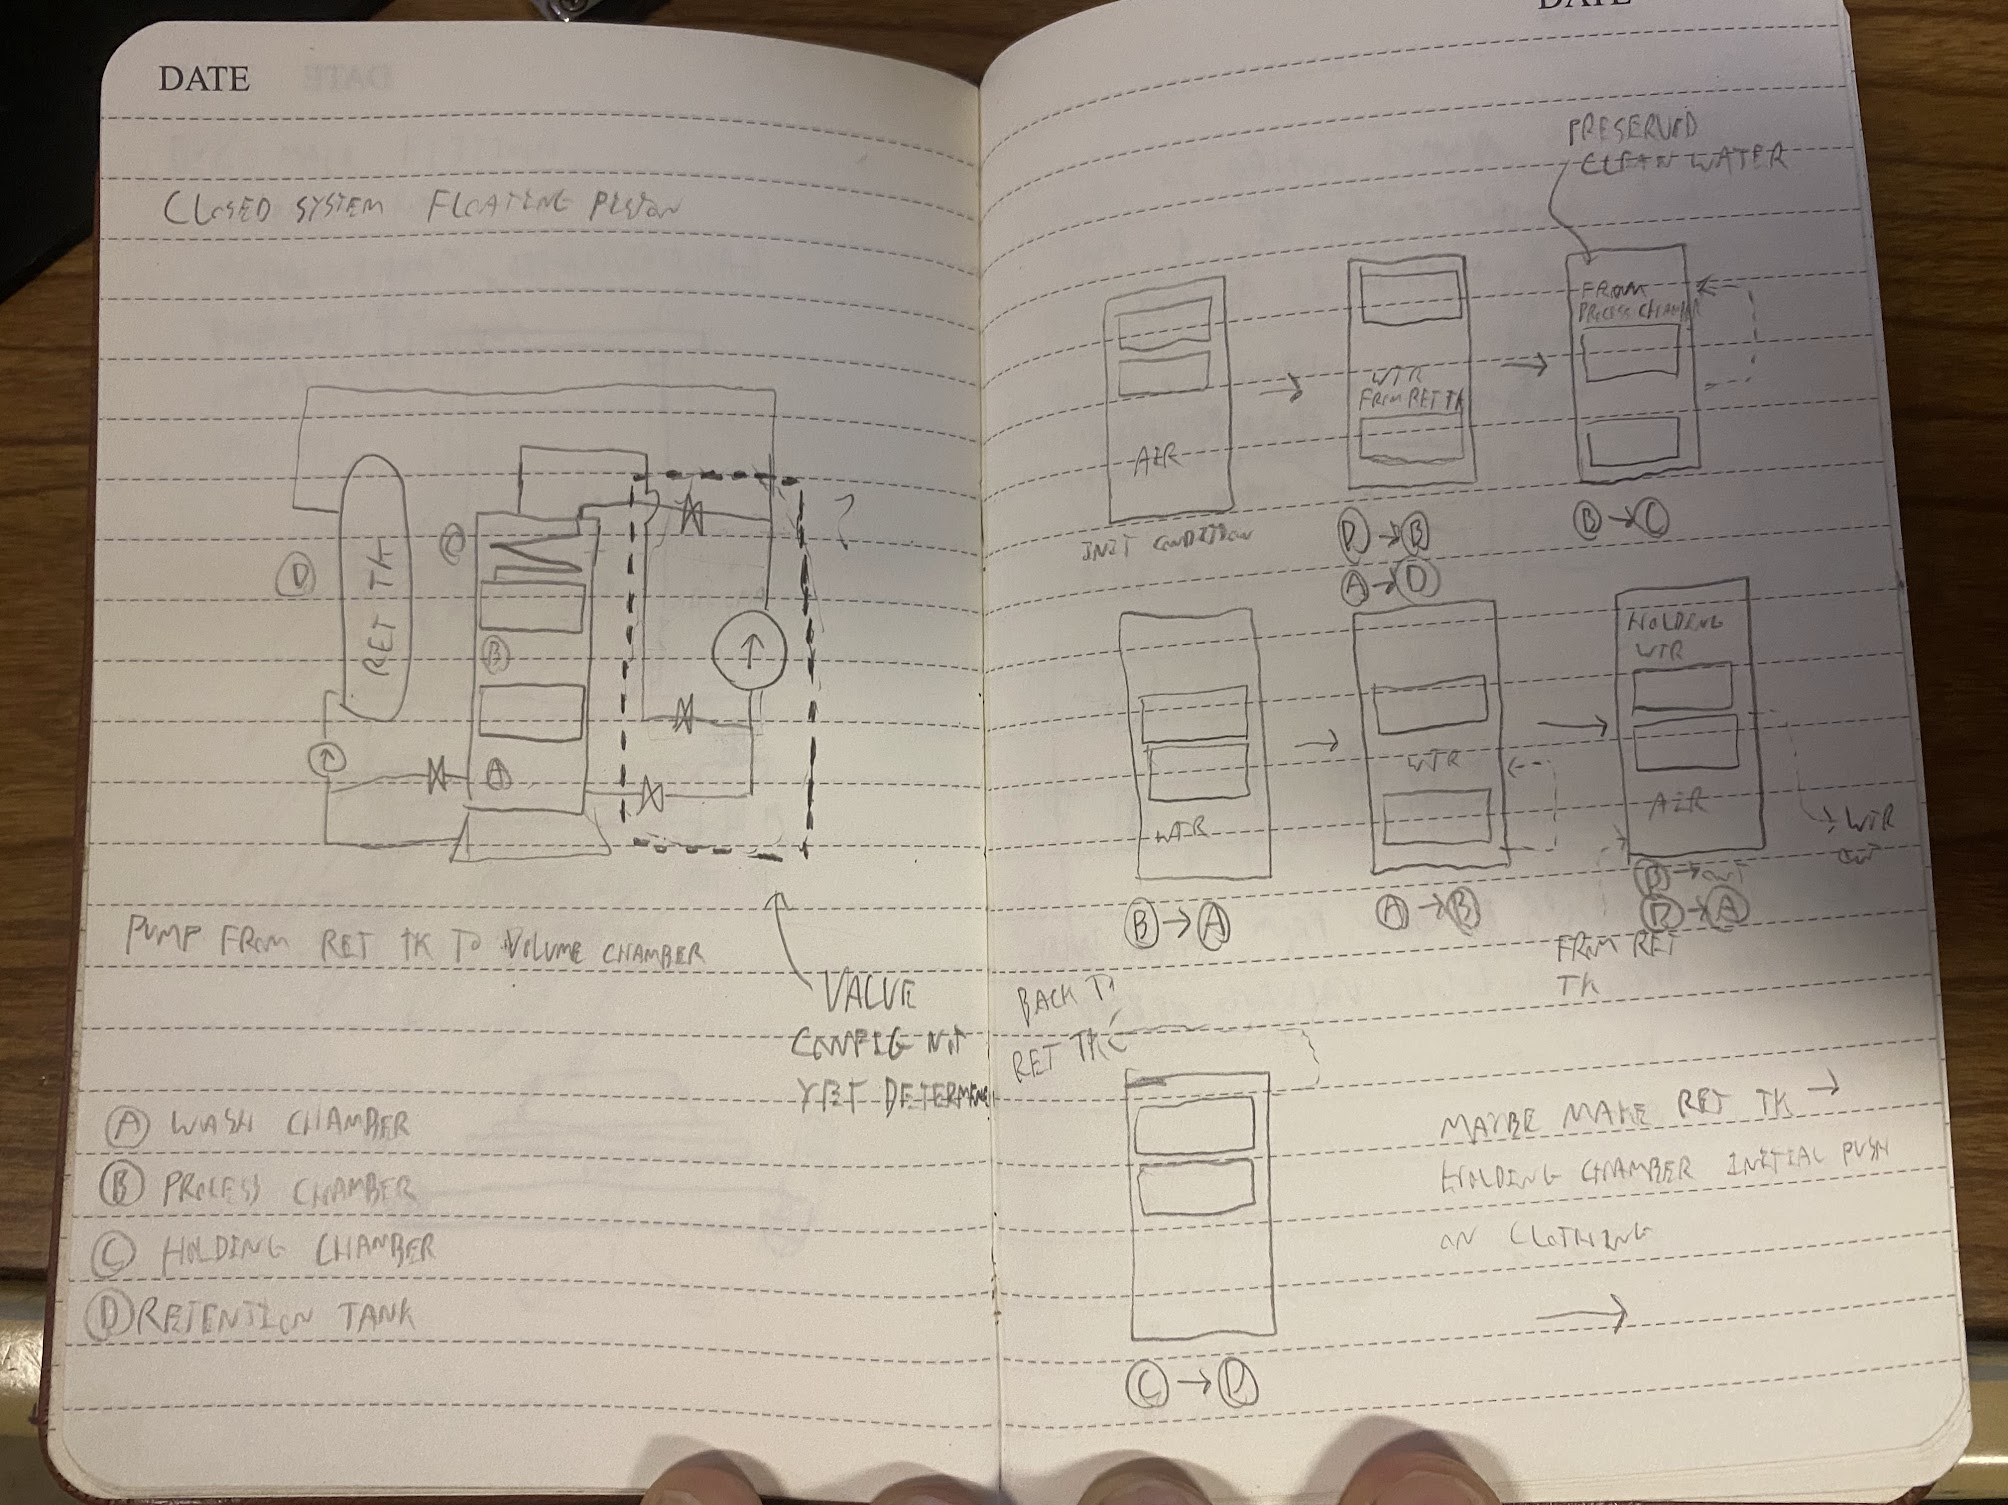 DATE
CLOSED SYSTEM FLOATING PISTON
D
RET TK
C
B
A
?
PUMP FROM RET TK TO VOLUME CHAMBER
VALVE
CONFIG NOT
YET DETERMINE
A WASH CHAMBER
B PROCESS CHAMBER
C HOLDING CHAMBER
D RETENTION TANK
DATE
PRESERVED
CLEAN WATER
AIR
INIT CONDITION
WTR
FROM RET TK
D → B
A → D
FROM
PROCESS CHAMBER
B → C
WTR
B → A
WTR
A → B
HOLDING
WTR
AIR
WTR
OUT
B → OUT
D → A
FROM RET
TK
BACK TO
RET TK
C → D
MAYBE MAKE RET TK →
HOLDING CHAMBER INITIAL PUSH
ON CLOTHING